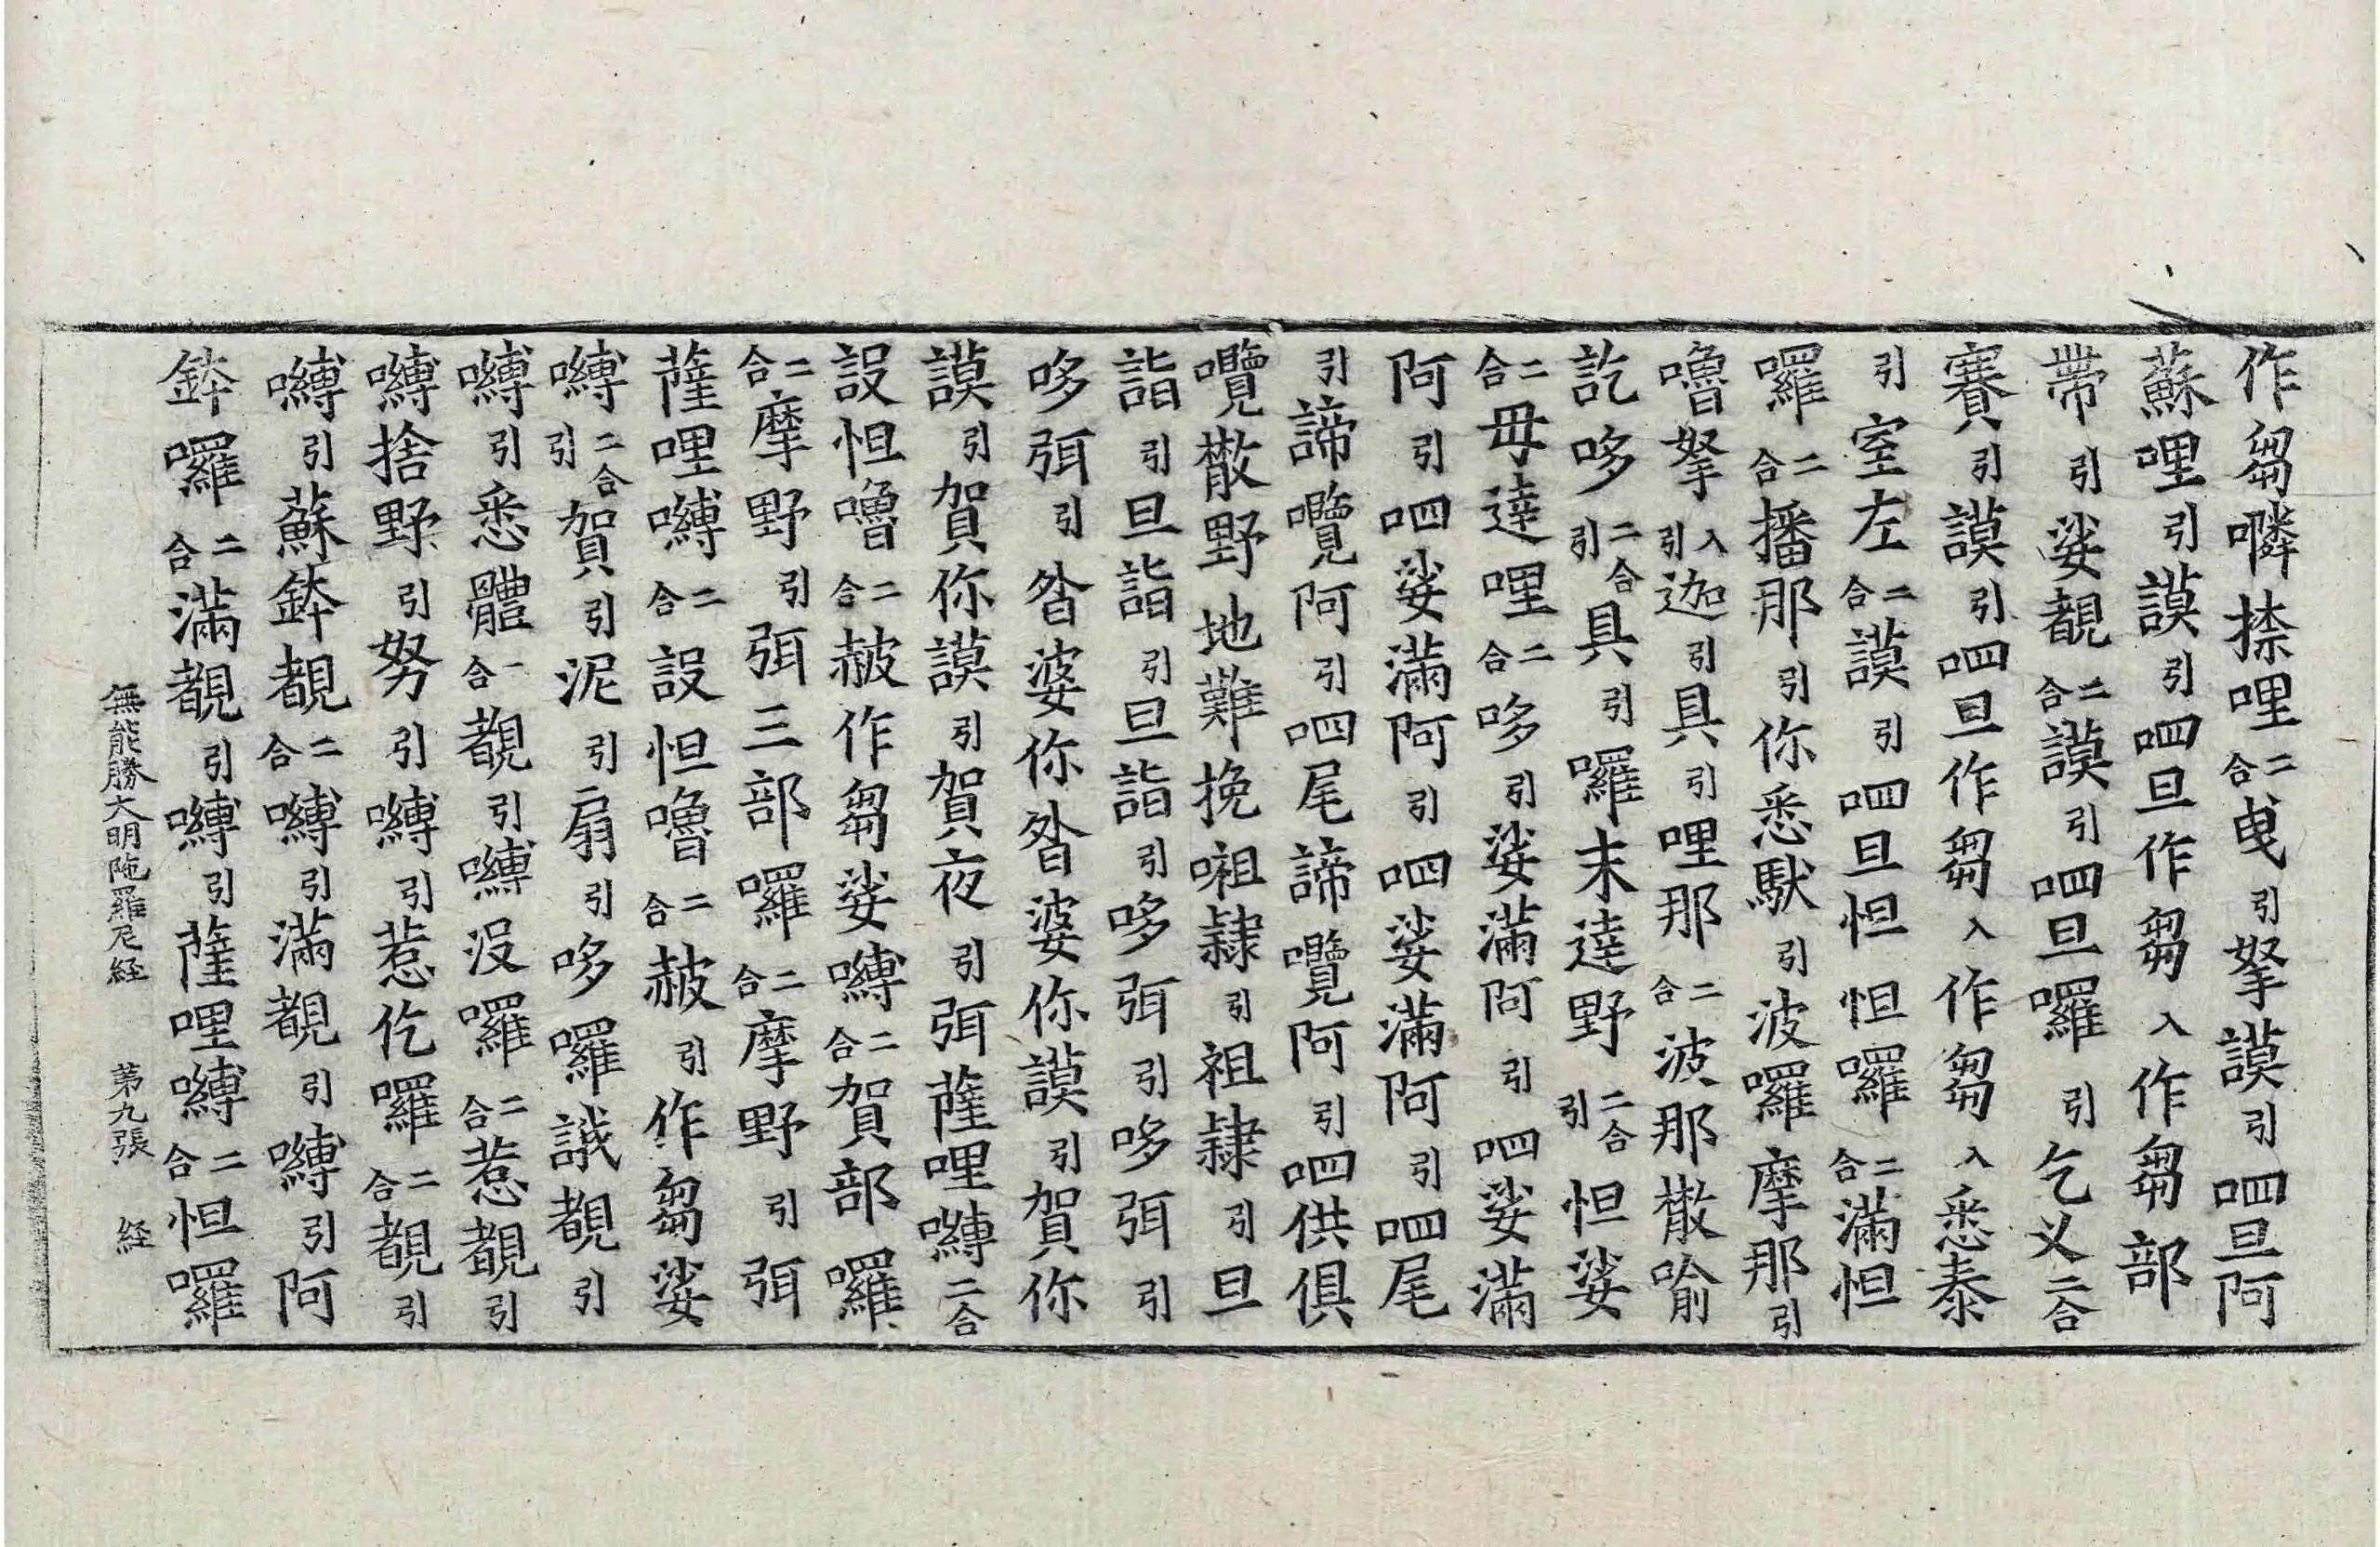 作芻噒㨆哩二合曳引拏謨引呬旦阿
蘇哩引謨引呬旦作芻入作芻部
帶引娑覩二合謨引呬旦囉引乞义二合
賽引謨引呬旦作芻入作芻入悉泰
引室左二合謨引呬旦怛怛囉二合滿怛
囉二合播那引你悉馱引波囉摩那引
嚕拏入引迦引具引哩那二合波那撒喻
訖哆二合引具引囉末達野二合引怛娑
二合毋達哩二合哆引娑滿阿引呬娑滿
阿引呬娑滿阿引呬娑滿阿引呬尾
引諦囕阿引呬尾諦囕阿引呬供俱
囕撒野地難挽㗱隸引祖隸引旦
詣引旦詣引旦詣引哆弭引哆弭引
哆弭引沯婆你沯婆你謨引賀你
謨引賀你謨引賀夜引弭薩哩嚩二合
設怛嚕二合赧作芻娑嚩二合賀部囉
二合摩野引弭三部囉二合摩野引弭
薩哩嚩二合設怛嚕二合赧引作芻娑
嚩二合引賀引泥引扇引哆囉誐覩引
嚩引悉體一合覩引嚩沒囉二合惹覩引
嚩捨野引努引嚩引惹仡囉二合覩引
嚩引蘇鉢覩二合嚩引滿覩引嚩引阿
鉢囉二合滿覩引嚩引薩哩嚩二合怛囉
無能勝大明陁羅尼経 第九張 経